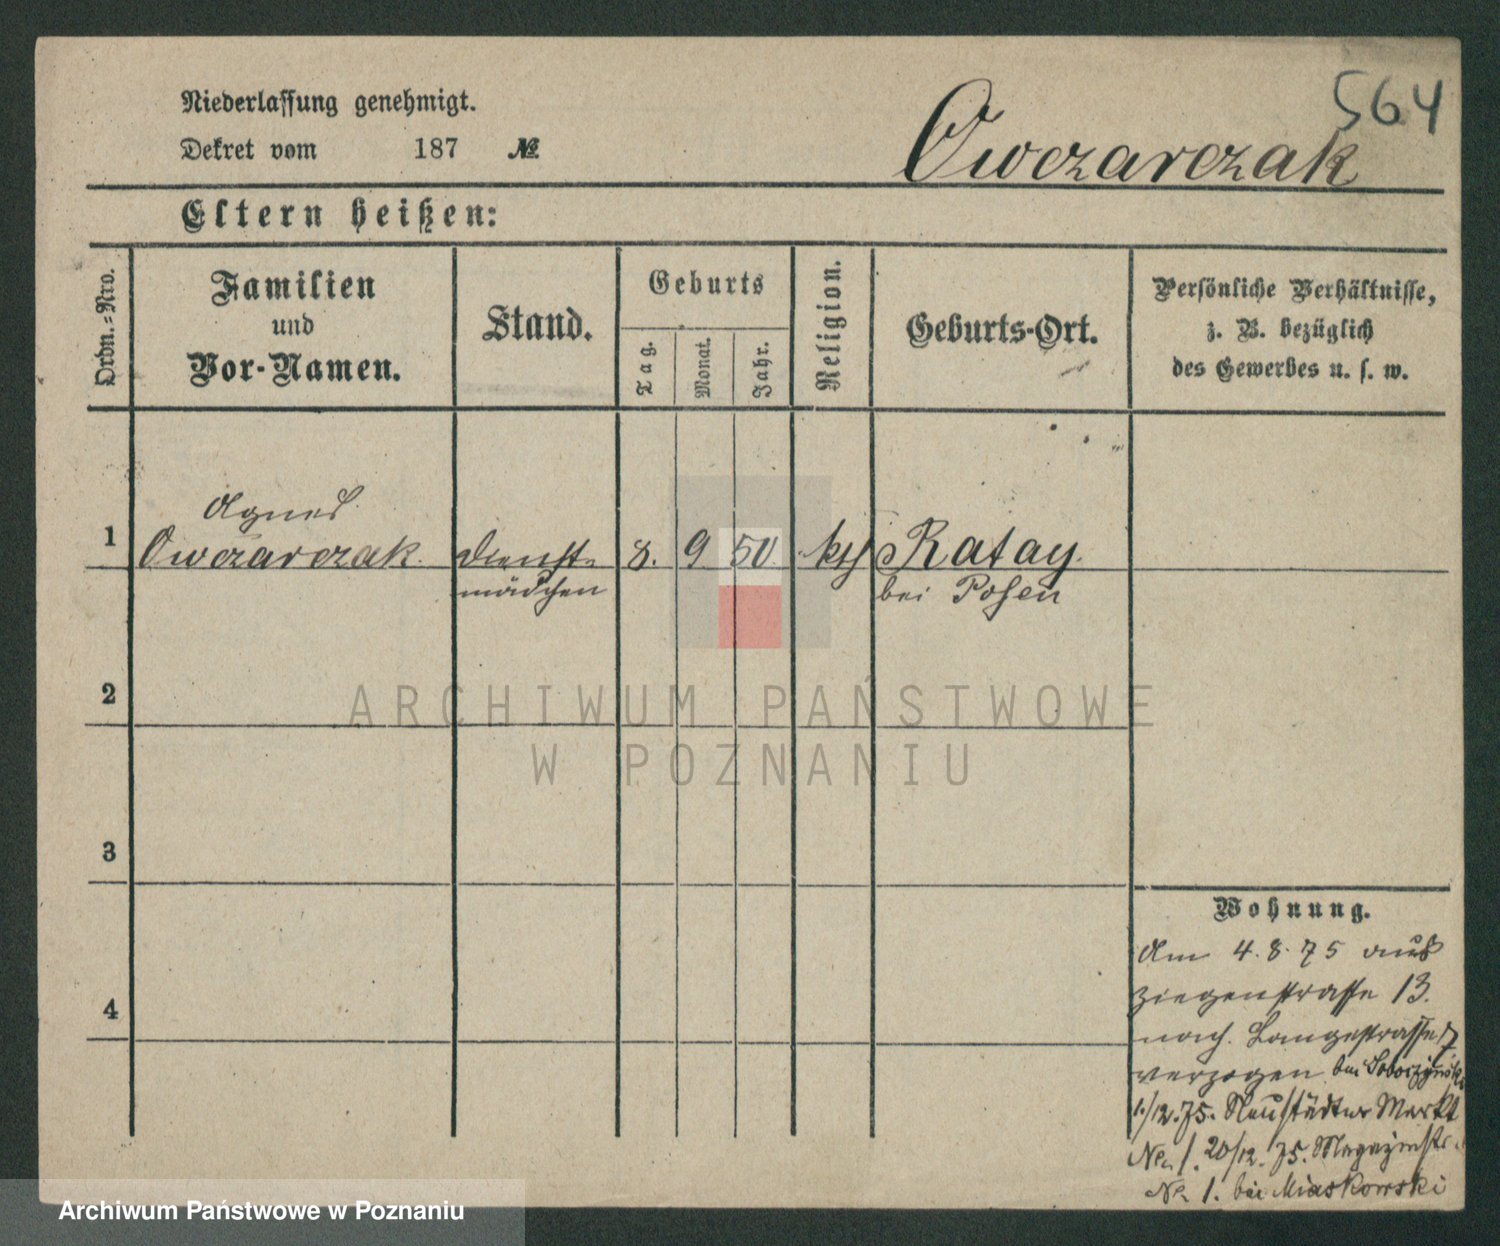 564
Niederlassung genehmigt.
Dekret vom 187 №
Owczarczak
Eltern heißen:
Ordn.-Nro.
Familien
und
Vor-Namen.
Stand.
Geburts
Tag.
Monat.
Jahr.
Religion.
Geburts-Ort.
Persönliche Verhältnisse,
z. B. bezüglich
des Gewerbes u. s. w.
Agnes
1 Owczarczak Dienst- 8. 9 50. kth Ratay
mädchen bei Posen
2
3
4
Wohnung.
Am 4.8.75 aus
Ziegenstrasse 13.
nach Langestrasse 7
verzogen bei
1./12.75. Neustädter Markt
No 1. 20/12.75. Magazinstr.
No 1. bei Miaskowski
ARCHIWUM PAŃSTWOWE
W POZNANIU
Archiwum Państwowe w Poznaniu